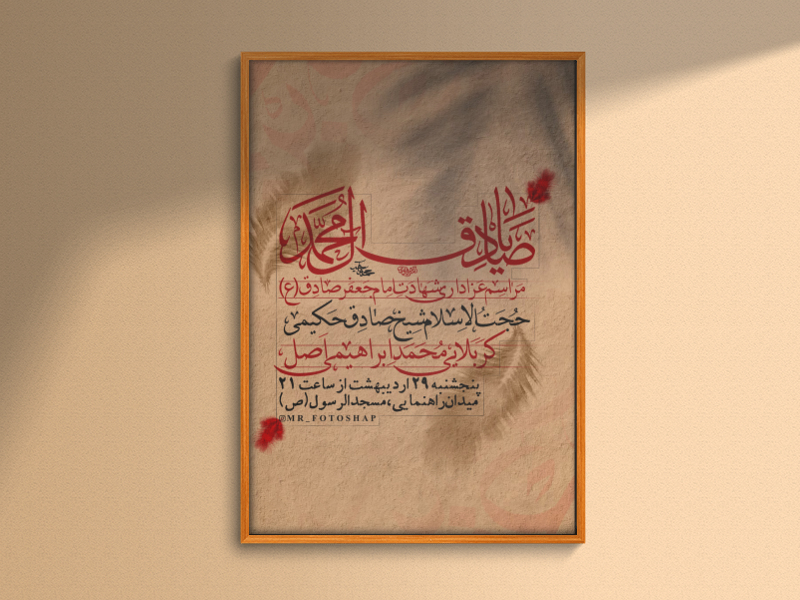 یا صادق آل محمد
مراسم عزاداری شهادت امام جعفر صادق (ع)
حجت الاسلام شیخ صادق حکیمی
کربلایی محمد ابراهیمی اصل
پنجشنبه ۲۹ اردیبهشت از ساعت ۲۱
میدان راهنمایی، مسجد الرسول (ص)
@MR_FOTOSHAP